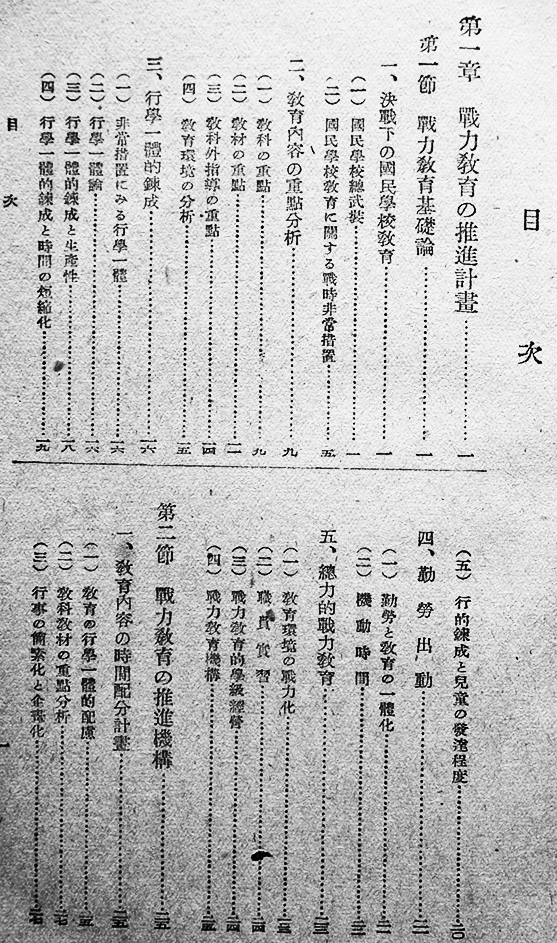 目次
第一章 戰力敎育の推進計畫………一
第一節 戰力敎育基礎論………一
一、決戰下の國民學校敎育………一
(一) 國民學校總武裝………一
(二) 國民學校敎育に關する戰時非常措置………五
二、敎育內容の重點分析………九
(一) 敎科の重點………九
(二) 敎材の重點………一二
(三) 敎科外指導の重點………一四
(四) 敎育環境の分析………一五
三、行學一體的鍊成………一六
(一) 非常措置にみる行學一體………一六
(二) 行學一體論………一六
(三) 行學一體的鍊成と生產性………一八
(四) 行學一體的鍊成と時間の短縮化………一九
(五) 行的鍊成と兒童の發達程度………二〇
四、勤勞出動………二一
(一) 勤勞と敎育の一體化………二一
(二) 機動時間………
五、總力的戰力敎育………
(一) 敎育環境の戰力化………
(二) 職員實習………二四
(三) 戰力敎育的學級經營………二四
(四) 戰力敎育機構………
第二節 戰力敎育の推進機構………
一、敎育內容の時間配分計畫………
(一) 敎育の行學一體的配慮………
(二) 敎科敎材の重點分析………
(三) 行事の簡素化と企畫化………
目次
一